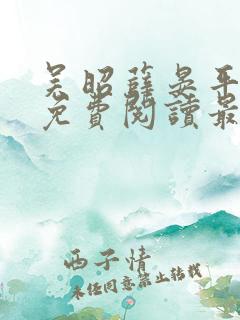 吴昭薛晏平
免费阅读最
西子情
未经同意禁止转载